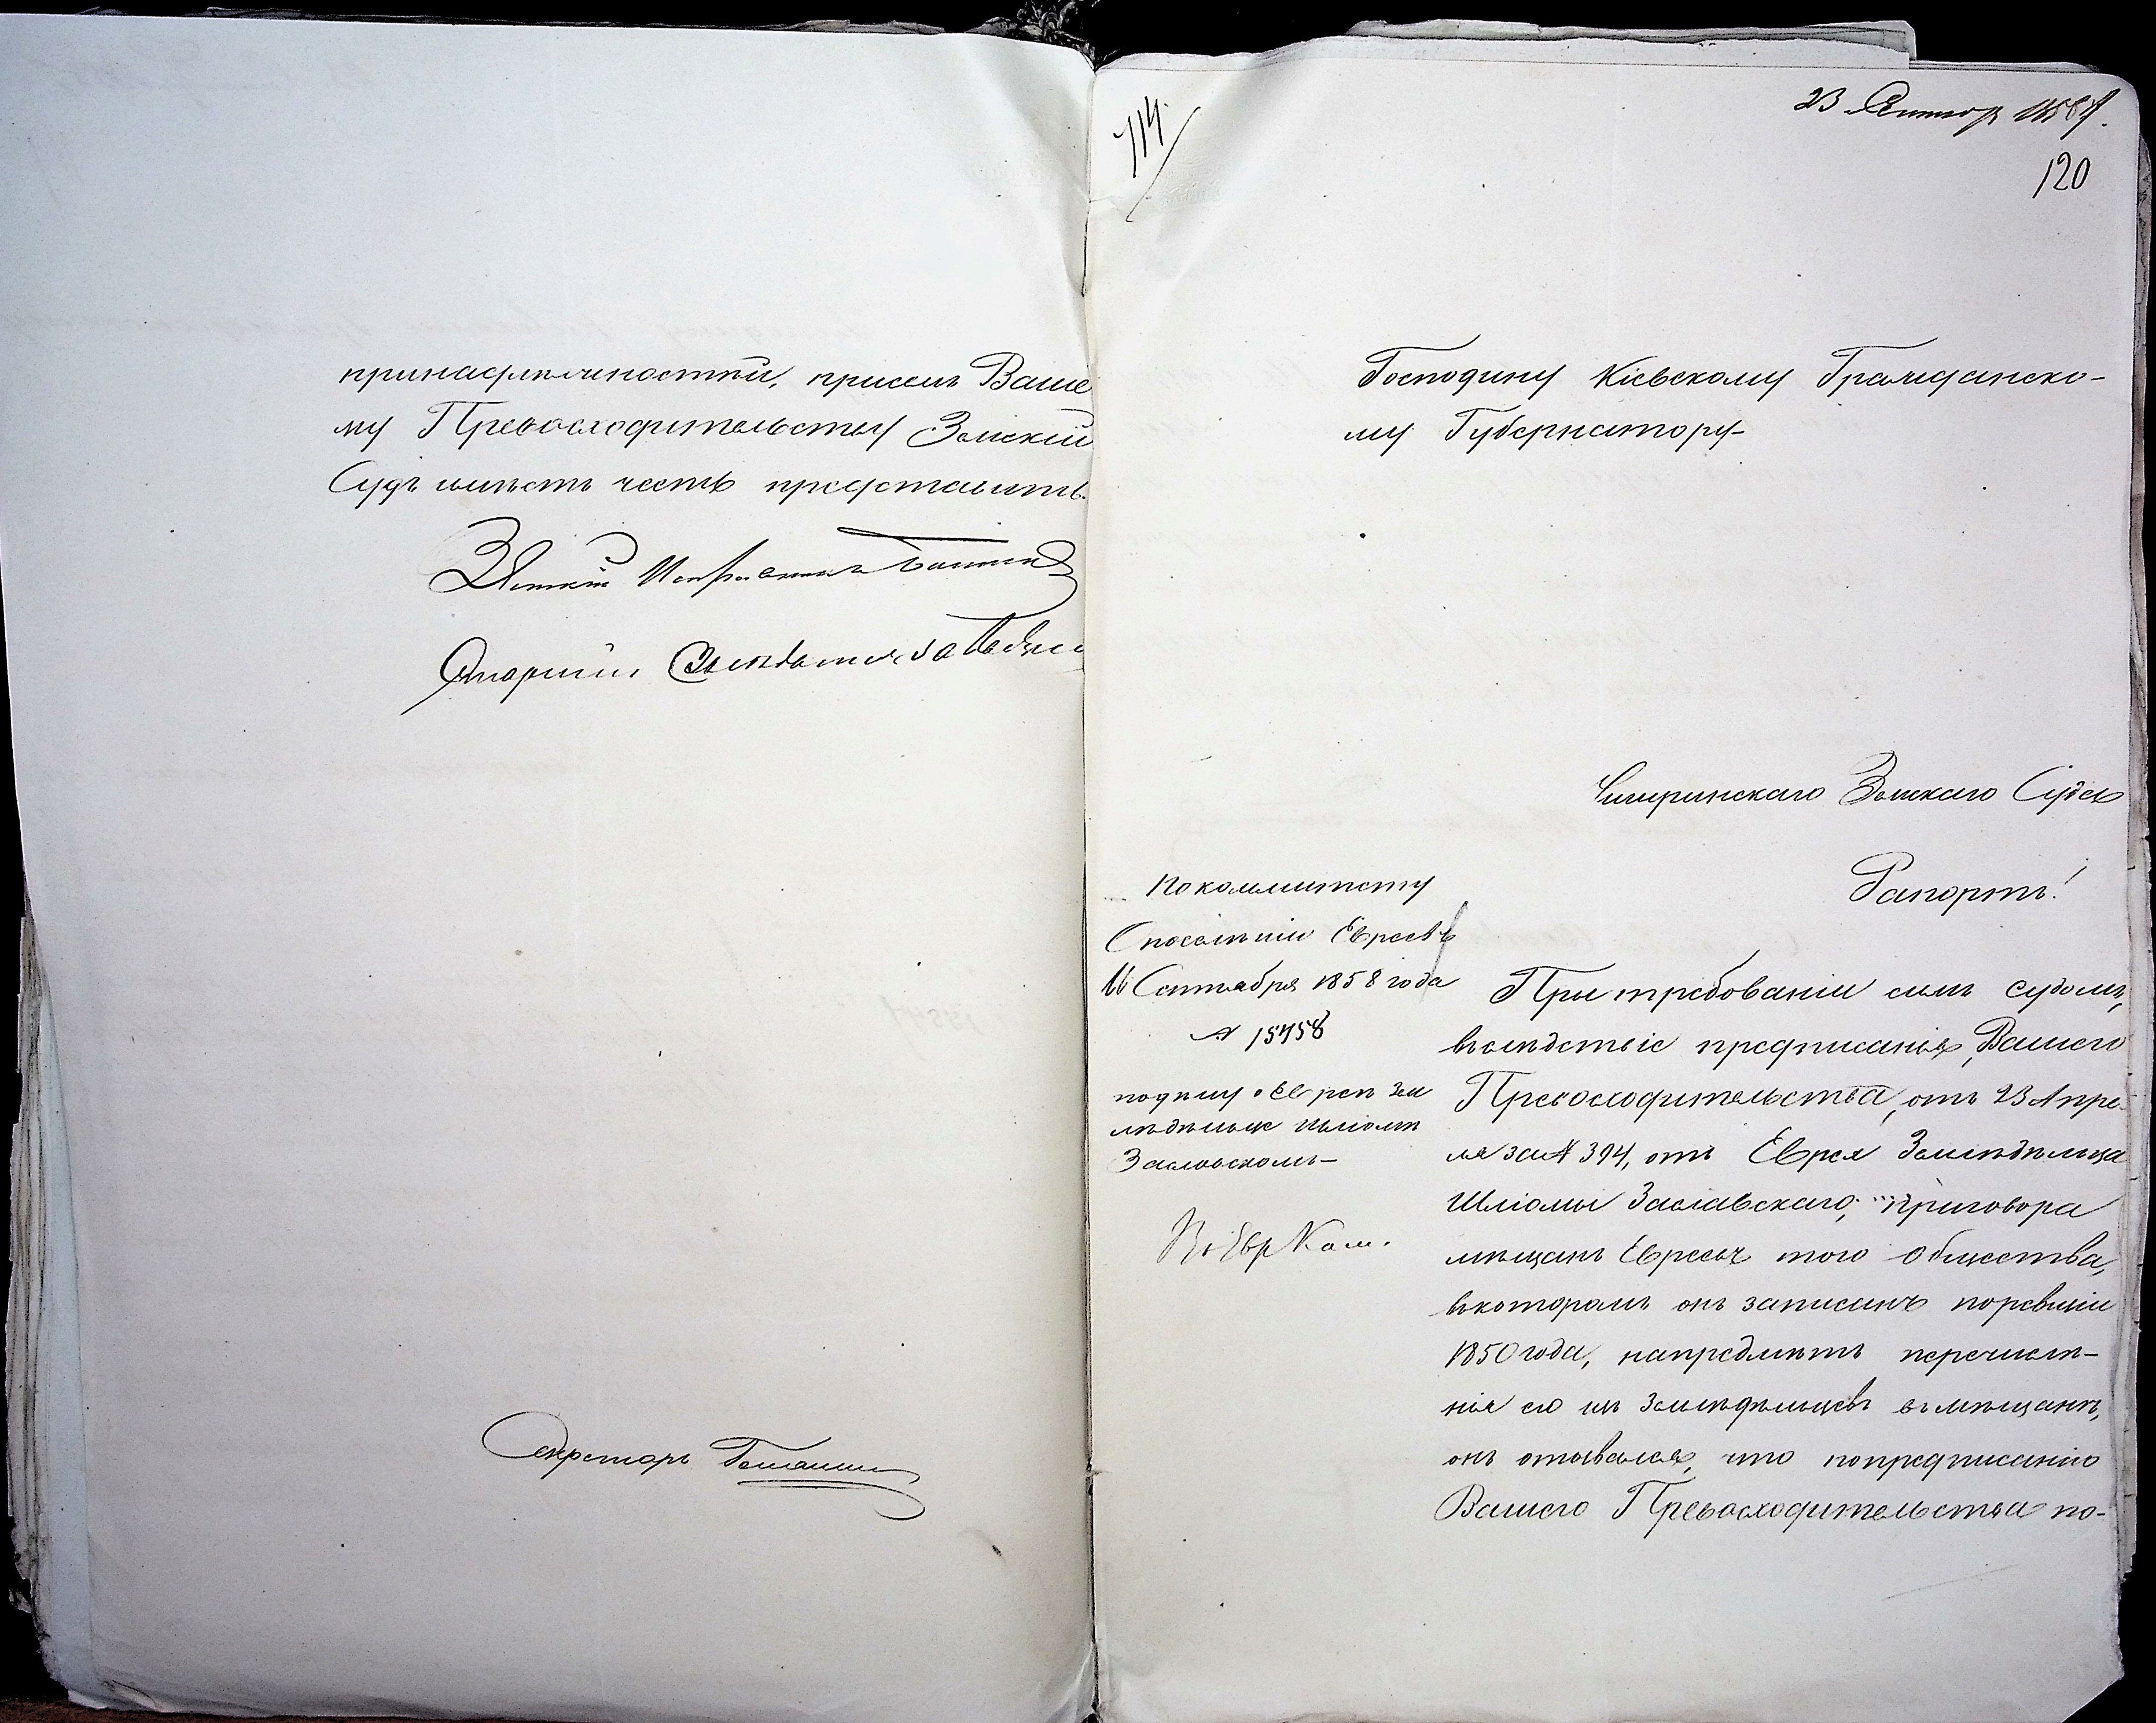 принадлежностей, присемъ Ваше
му Превосходительству Земскій
Судъ имѣетъ честь представить.
Земскій Исправникъ
Старшій Засѣдатель
Секретарь
114
23 Сентяб
120
Господину Кіевскому Гражданско-
му Губернатору-
Чигиринскаго Земскаго Суда
Рапортъ!
По коммитету
О поселеніи Евреевъ
16 Сентября 1858 года
№ 15758
по дѣлу о Евреѣ Зем
ледѣльце Шліомѣ
Заславскомъ-
По Евр Ком.
При требованіи симъ судомъ,
въ следствіе предписанія, Вашего
Превосходительства, отъ 23 Апре-
ля за № 394, отъ Еврея Земледѣльца
Шліомы Заславскаго, приговора
мещанъ Евреевъ того общества,
въ которомъ онъ записанъ по ревизіи
1850 года, на предметъ перечисле-
нія его изъ Земледѣльцевъ въ мѣщане,
онъ отозвался, что по предписанію
Вашего Превосходительства по-